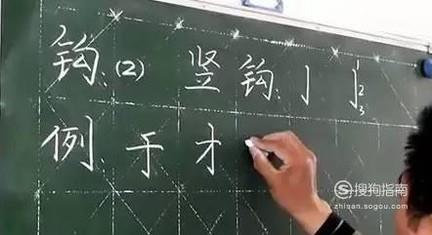 钩:(2) 竖钩:亅 亅 1 2 3
例:于才
搜狗指南
zhinan.sogou.com